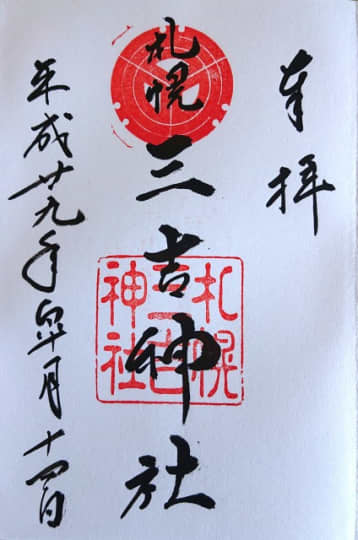 奉拝
札幌
三吉神社
平成廿九年皐月十四日
札幌
三吉
神社